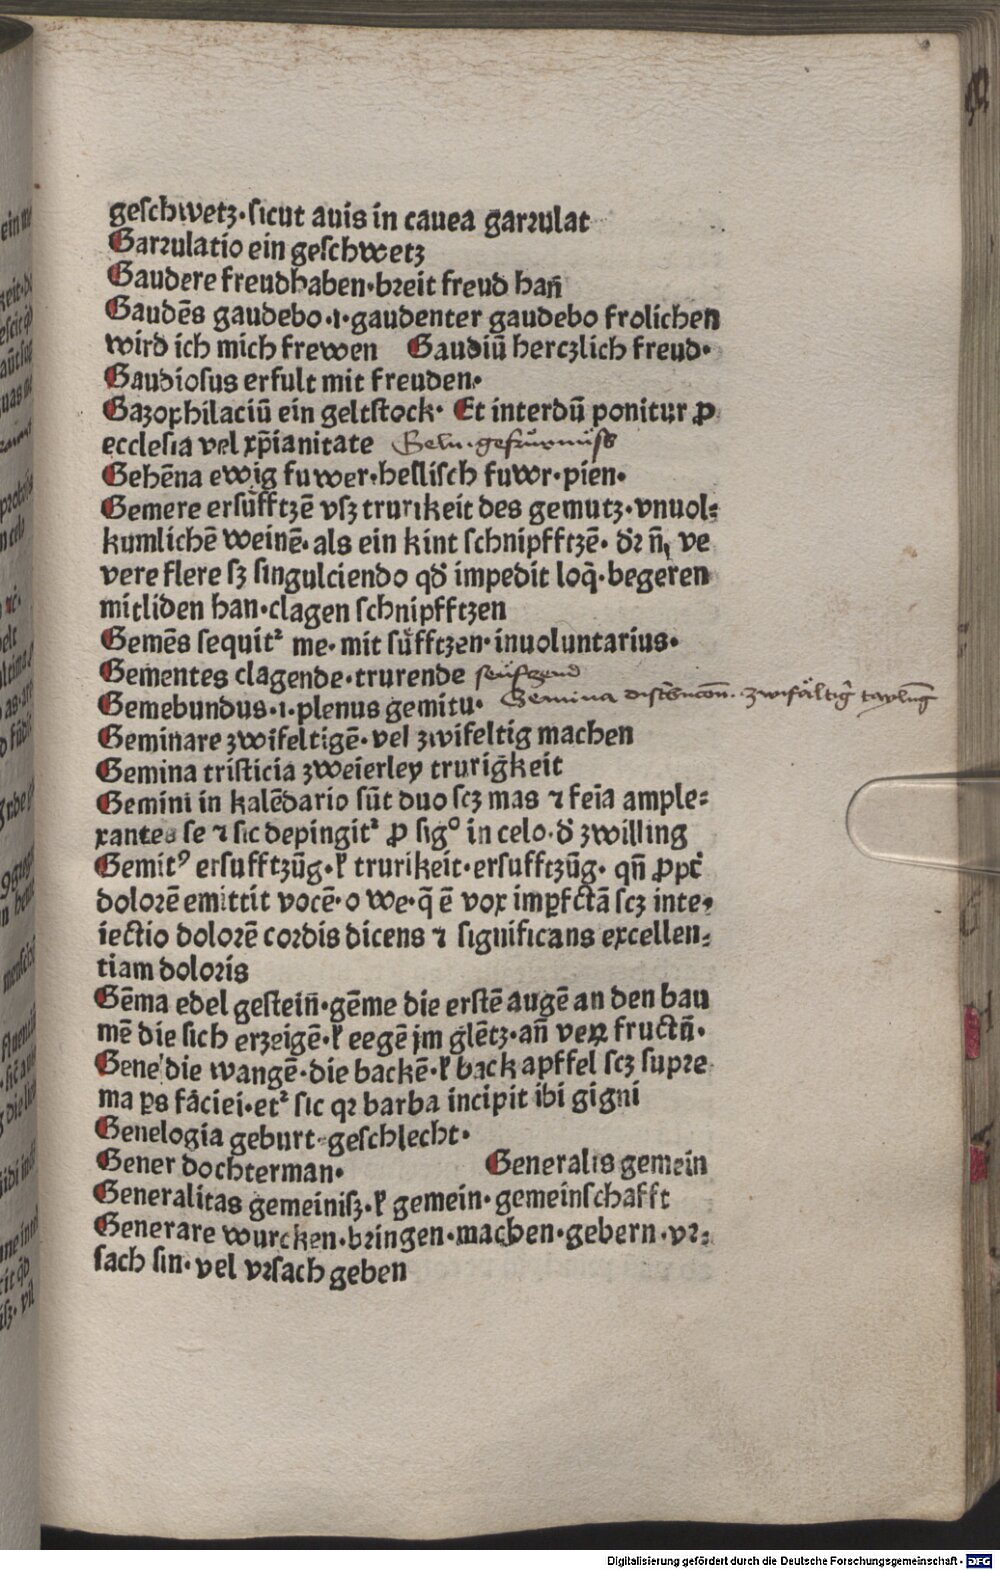 geſchwetz·ſicut auis in cauea garꝛulat
Garꝛulatio ein geſchwetz
Gaudere freudhaben·bꝛeit freud han̄
Gaudēs gaudebo·i·gaudenter gaudebo frolichen
wird ich mich frewen Gaudiū herczlich freud·
Gaudioſus erfult mit freuden·
Gazophilaciū ein geltſtock· Et interdū ponitur ꝓ
eccleſia vel xp̄ianitate
Gehēna ewig fuwer·helliſch fuwr·pien·
Gemere erſufftzē vſz trurikeit des gemutz·vnuol⸗
kumlichē weinē·als ein kint ſchnipfftzē· dꝛ n̄ ve
vere flere ſz ſingulciendo qd impedit loq̄·begeren
mitliden han·clagen ſchnipfftzen
Gemēs ſequitᷣ me·mit ſufftzen·inuoluntarius·
Gementes clagende·trurende ſeuͤfzend
Gemebundus·i·plenus gemitu· Gemina
Geminare zwifeltigē·vel zwifeltig machen
Gemina triſticia zweierley trurigkeit
Gemini in kalēdario ſūt duo ſcz mas ⁊ feīa ample⸗
xantes ſe ⁊ ſic depingitᷣ ꝓ ſigᵒ in celo·d zwilling
Gemitꝰ erſufftzūg·ł trurikeit·erſufftzūg· qn̄ ꝓpt̄
dolorē emittit vocē·o we·q̄ ē vox imꝑfctā ſcz inte⸗
iectio dolorē cordis dicens ⁊ ſignificans excellen⸗
tiam doloꝛis
Gēma edel geſtein̄·gēme die erſtē augē an den bau
mē die ſich erzeigē·ł eegē jm glētz·an̄ veꝝ fructū·
Gene die wangē·die backē·ł back apffel ſcz ſupꝛe
ma ꝑs faciei·etᷣ ſic qꝛ barba incipit ibi gigni
Genelogia geburt·geſchlecht·
Gener dochterman· Generalis gemein
Generalitas gemeiniſz·ł gemein·gemeinſchafft
Generare wurcken·bꝛingen·machen·gebern·vꝛ⸗
ſach ſin·vel vꝛſach geben
Digitalisierung gefördert durch die Deutsche Forschungsgemeinschaft - DFG